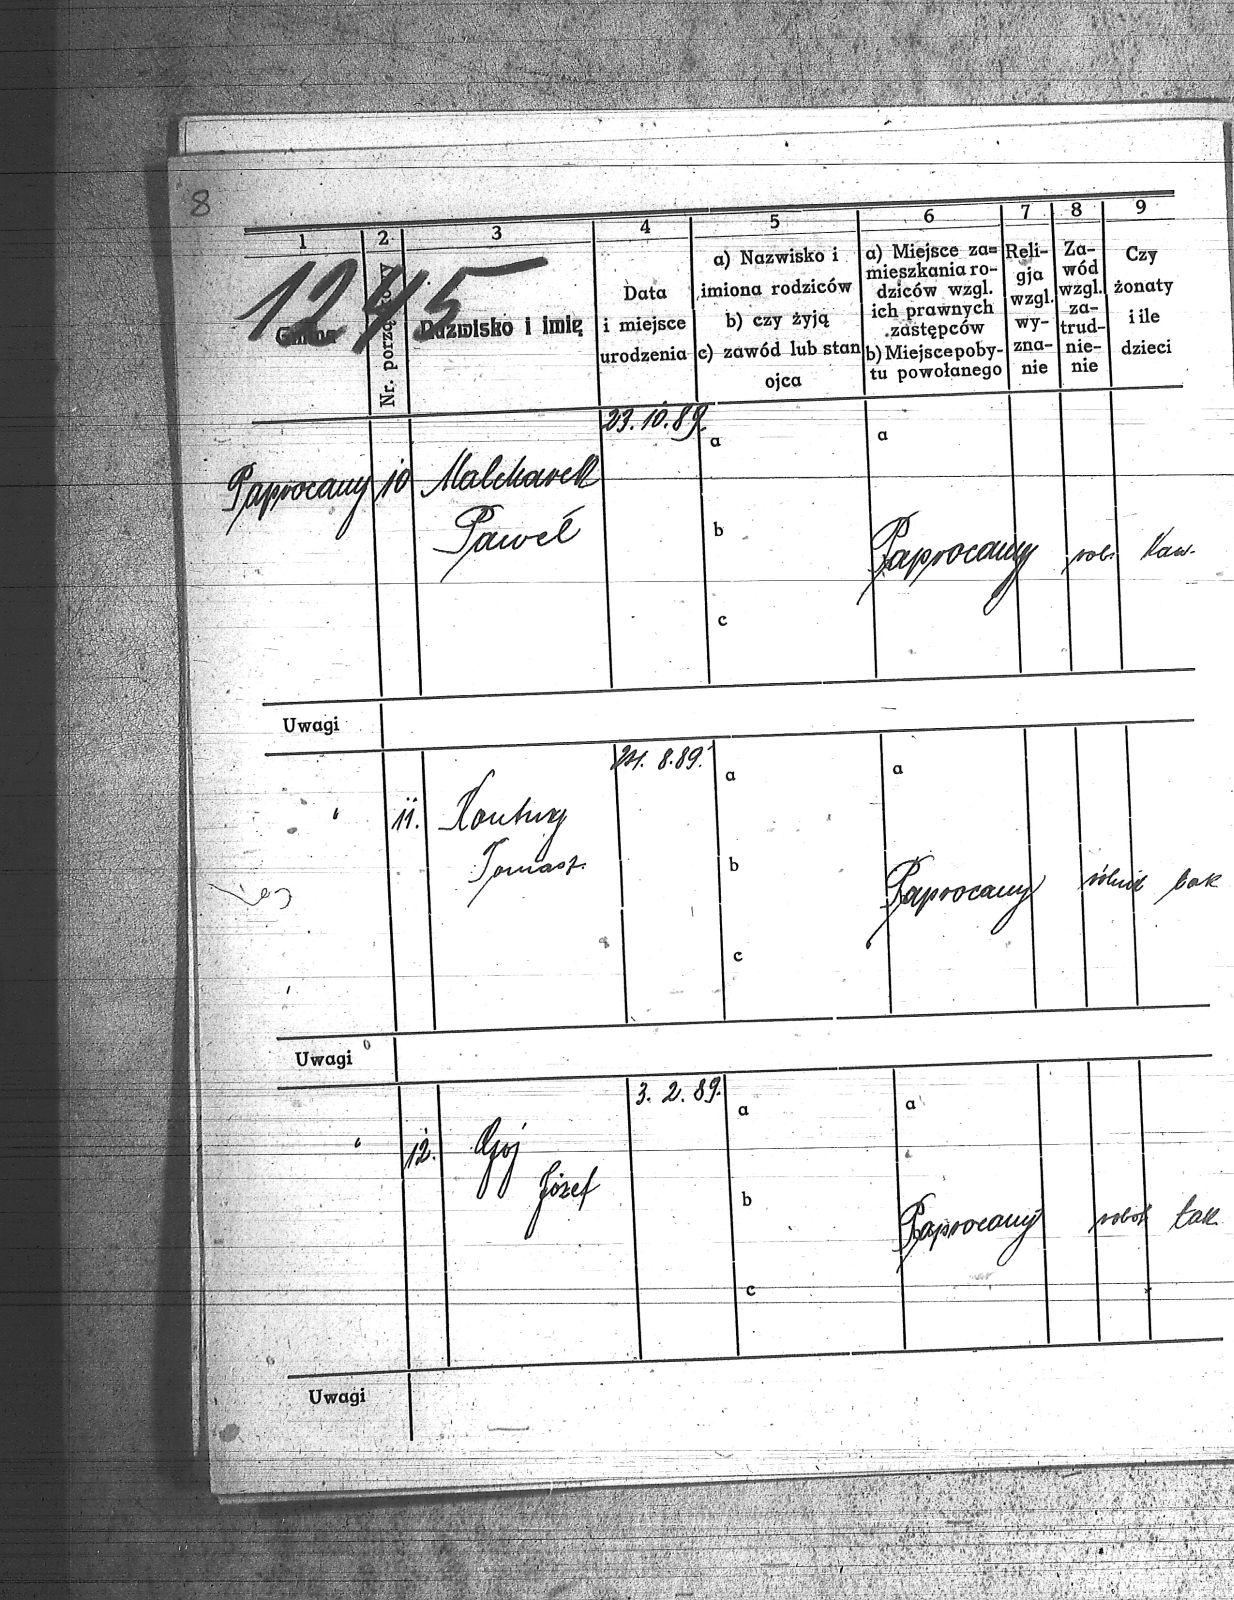 8
1 2 3 4 5 6 7 8 9
1245
Gmina
Nr. porządkowy
Nazwisko i imię
Data
i miejsce
urodzenia
a) Nazwisko i
imiona rodziców
b) czy żyją
c) zawód lub stan
ojca
a) Miejsce za=
mieszkania ro-
dziców wzgl.
ich prawnych
zastępców
b) Miejsce poby-
tu powołanego
Reli-
gja
wzgl.
wy-
zna-
nie
Za-
wód
wzgl.
za-
trud-
nie-
nie
Czy
żonaty
i ile
dzieci
23. 10. 89.
a a
Paprocany 10
Paweł
b
Paprocany rob. kaw.
c
Uwagi
8.89.
a a
" 11.
Tomasz.
b
Paprocany rolnik tak
c
Uwagi
3. 2. 89.
a a
" 12. Gój
Józef
b
Paprocany robot tak.
c
Uwagi